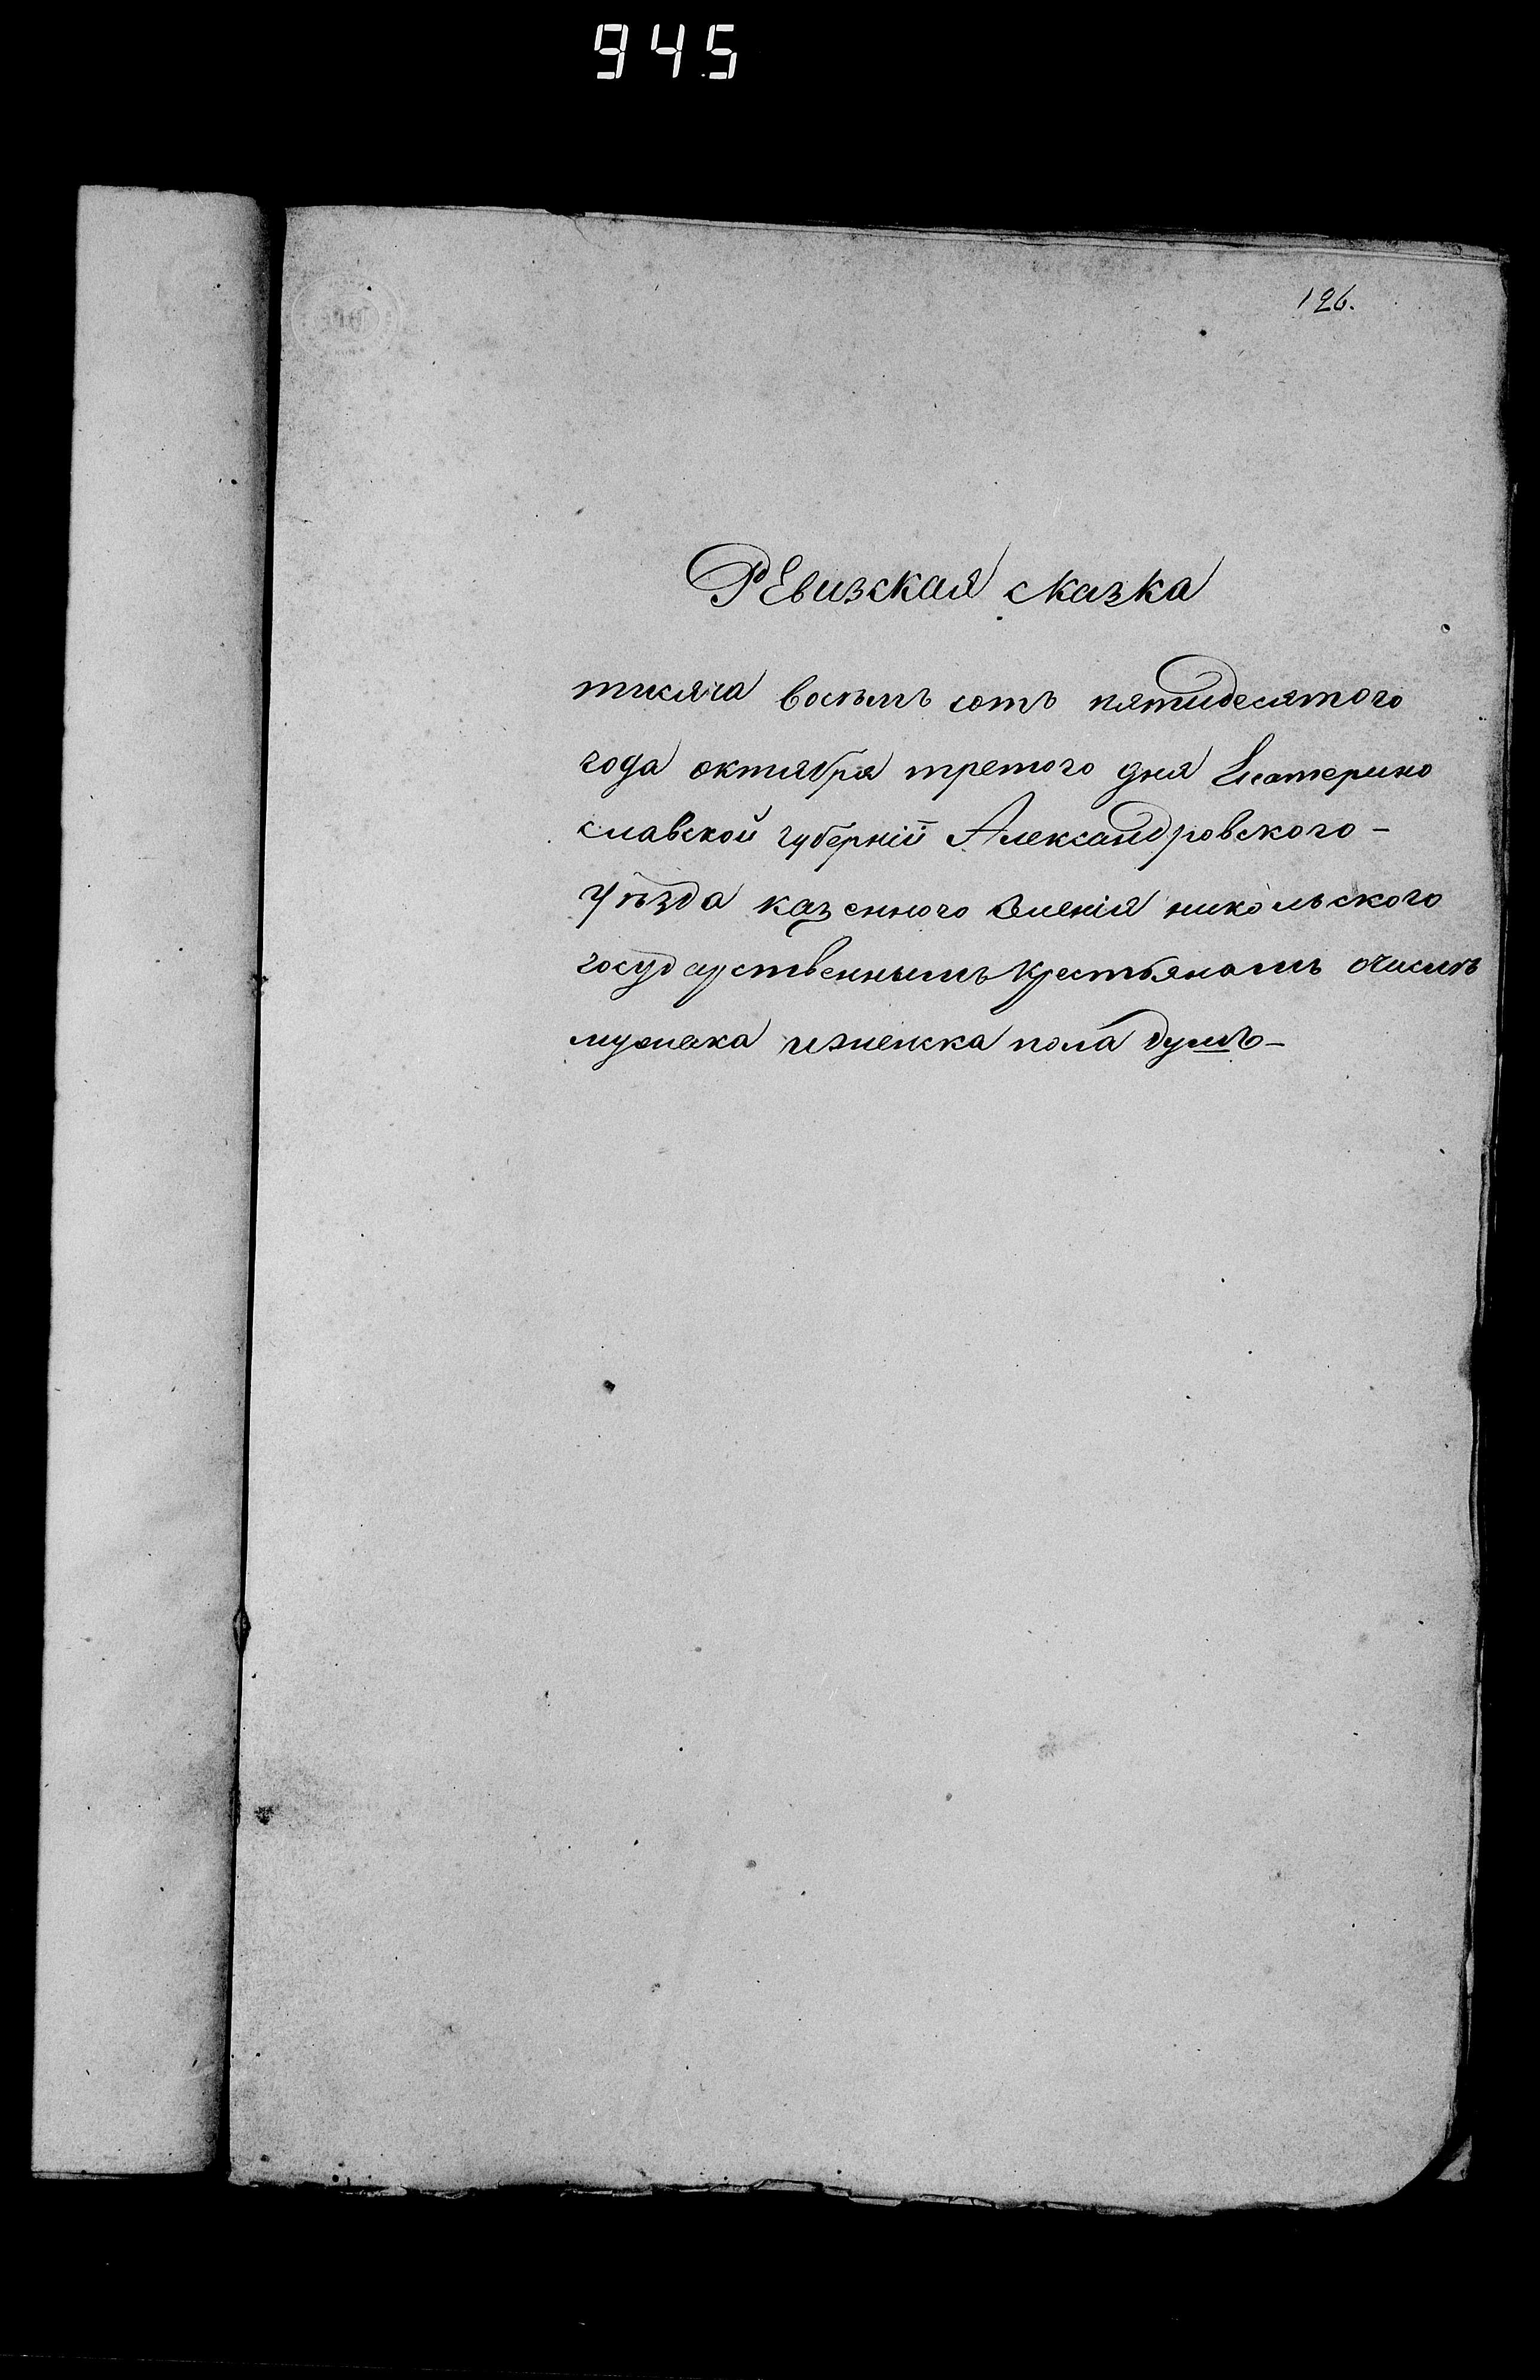 945
126.
Ревизская сказка
тисяча восемь сотъ пятидесятого
года октября третого дня Екатерино
славской губерніи Александровского-
уѣзда казенного селенія никольского
государственнымъ крестьянамъ очислѣ
мужеска иженска пола душъ-